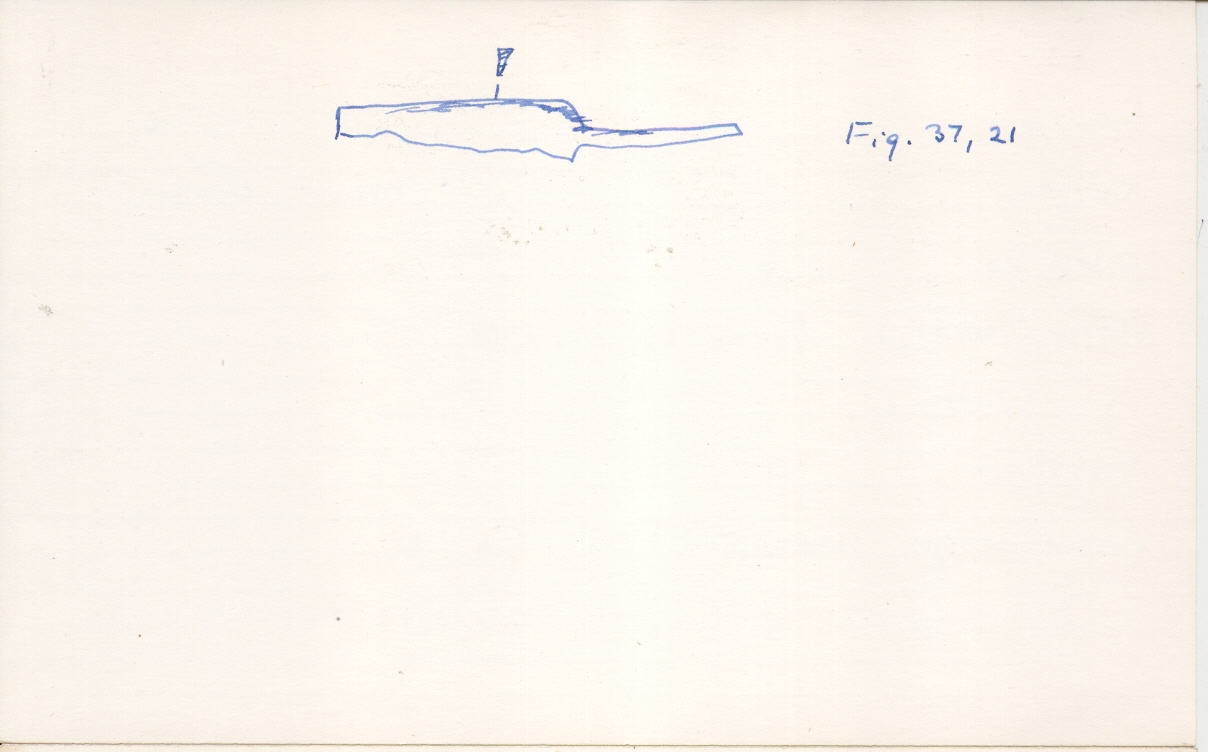 Fig. 37, 21